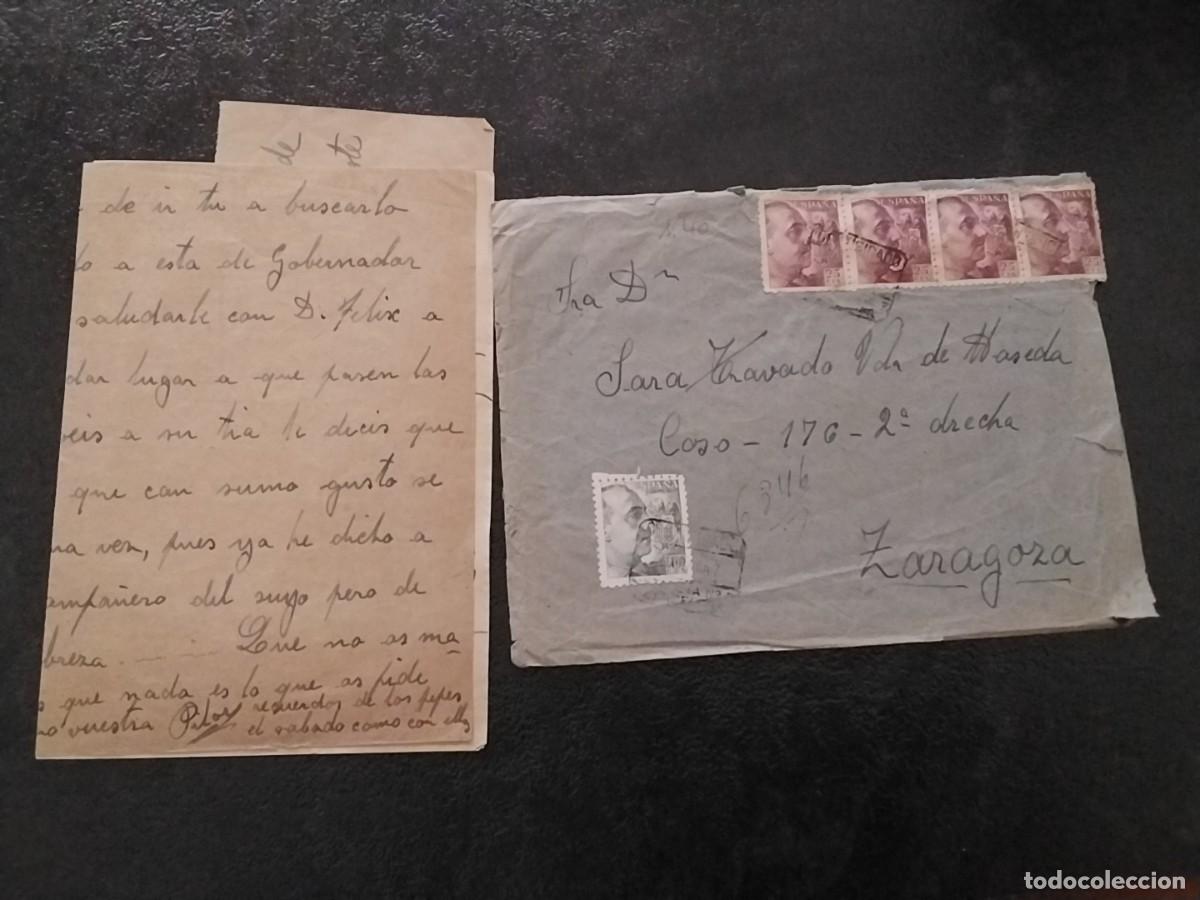 de
te
de ir tu a buscarlo
do a esta de Gobernador
saludarle con D. Felix a
dar lugar a que pasen las
veis a su tia le decis que
que con sumo gusto se
na vez, pues ya he dicho a
ompañero del suyo pero de
breza. Que no os ma
s que nada es lo que os pide
vuestra Pilar recuerdos de los pepes
el sabado como con ellos
1,40
ESPAÑA
ESPAÑA
ESPAÑA
ESPAÑA
CERTIFICADO
Sra Dn
Sara Travado Vda de Haseda
Coso - 176 - 2ª drecha
ESPAÑA
40
6346
Zaragoza
todocoleccion